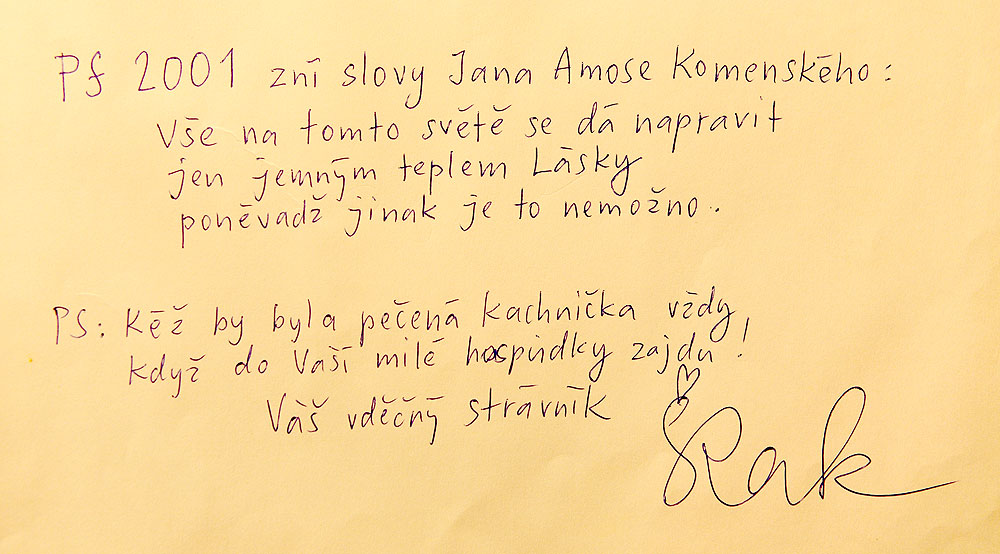 Pf 2001 zní slovy Jana Amose Komenského:
Vše na tomto světě se dá napravit
jen jemným teplem Lásky
poněvadž jinak je to nemožno.
PS: Kéž by byla pečená kachnička vždy
když do Vaší milé hospůdky zajdu!
Váš vděčný strávník